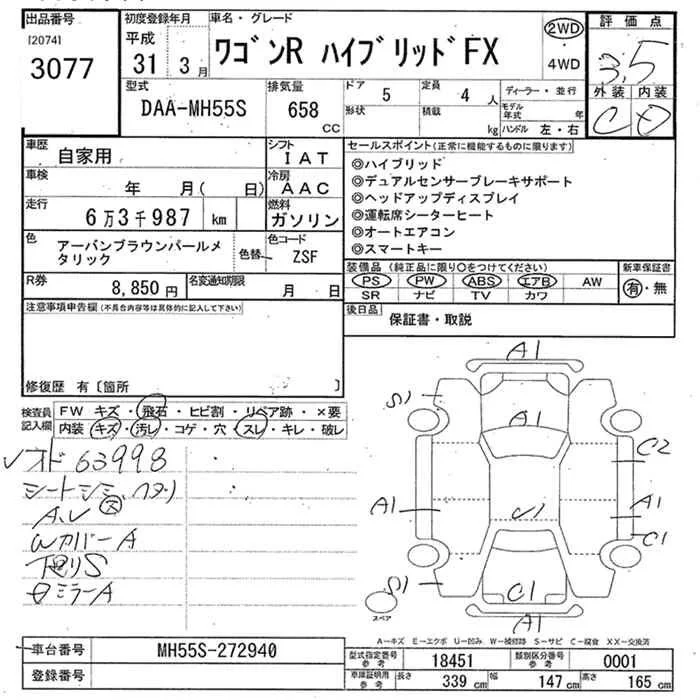 出品番号
[2074]
3077
初度登録年月
平成
31 3月
車名・グレード
ワゴンR ハイブリッドFX
2WD
・
4WD
評価点
3.5
外装 内装
C D
型式
DAA-MH55S
排気量
658 CC
ドア 5
定員 4 人
形状
積載 kg
ディーラー・並行
モデル年式 年
ハンドル 左・右
車歴
自家用
シフト
IAT
車検
年 月( 日)
冷房
AAC
走行
6万3千987 km
燃料
ガソリン
色
アーバンブラウンパールメタリック
色替
色コード
ZSF
R券
8,850円
名変通知期限
月 日
セールスポイント(正常に機能するものに限ります)
◎ハイブリッド
◎デュアルセンサーブレーキサポート
◎ヘッドアップディスプレイ
◎運転席シーターヒート
◎オートエアコン
◎スマートキー
装備品 (純正品に限り○をつけてください)
PS PW ABS エアB AW
SR ナビ TV カワ
新車保証書
有・無
後日品
保証書・取説
注意事項申告欄(不具合内容等は具体的に記入して下さい)
修復歴 有〔箇所 〕
検査員記入欄
FW キズ・飛石・ヒビ割・リペア跡・×要
内装 キズ・汚レ・コゲ・穴・スレ・キレ・破レ
63998
シートシミ
Wカバー A
ミラーA
A1
S1
A1
C2
A1
A1
C1
S1
C1
A1
スペア
A-キズ E-エクボ U-凹み W-補修跡 S-サビ C-腐食 XX-交換済
車台番号
MH55S-272940
登録番号
型式指定番号 参考
18451
類別区分番号 参考
0001
車庫証明用 参考
長さ 339 cm
幅 147 cm
高さ 165 cm